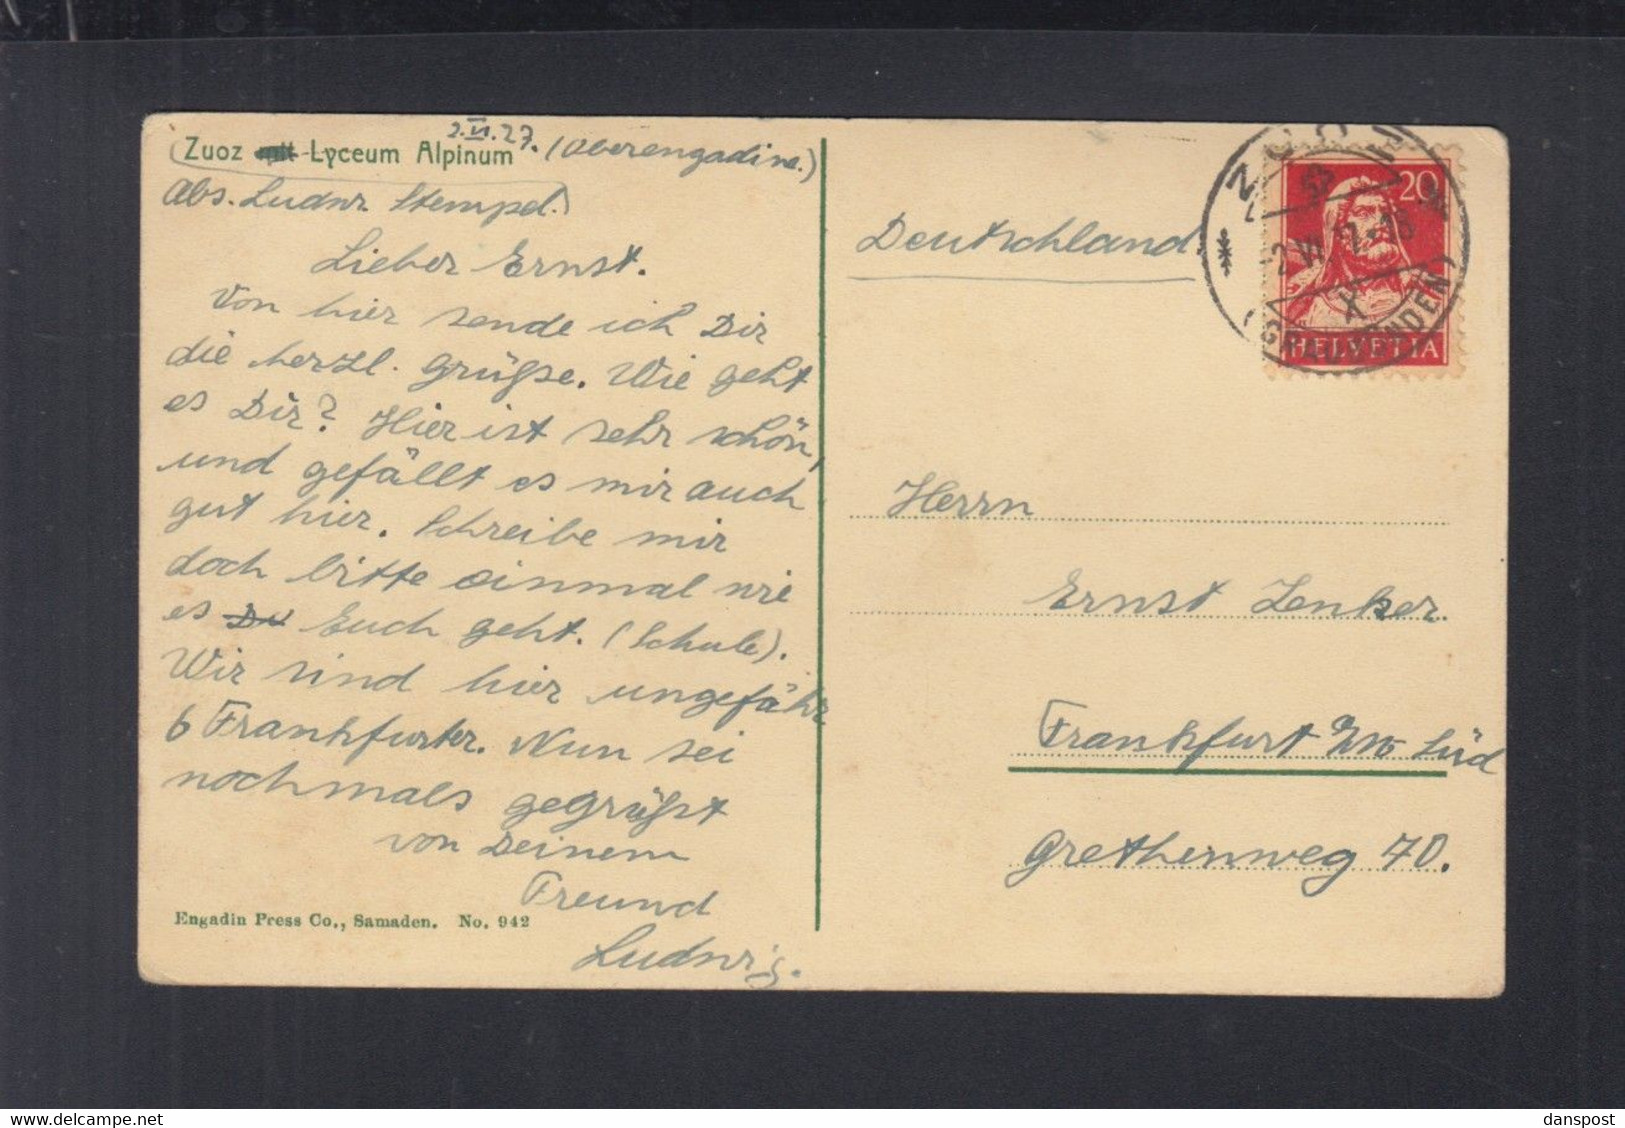 2.VI.27.
Zuoz mit Lyceum Alpinum (Oberengadine.)
Abs. Ludw. Stempel.
Lieber Ernst.
Von hier sende ich Dir
die herzl. Grüße. Wie geht
es Dir? Hier ist sehr schön,
und gefällt es mir auch
gut hier. Schreibe mir
doch bitte einmal wie
es Du Euch geht. (Schule).
Wir sind hier ungefähr
6 Frankfurter. Nun sei
nochmals gegrüßt
von Deinem
Freund
Ludwig.
Engadin Press Co., Samaden. No. 942
Deutschland
20
HELVETIA
(GRAUBÜNDEN)
Herrn
Ernst Lenker.
Frankfurt a/M Süd
Grethenweg 70.
danspost
https://www.delcampe.net